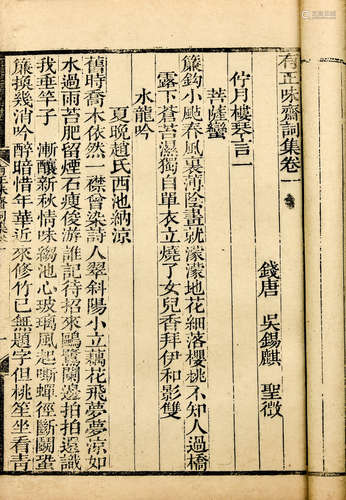 有正味齋詞集卷一
錢唐 吳錫麒 聖徵
佇月樓琴言一
菩薩蠻
簾鈎小颭春風裏薄陰畫就濛濛地花細落櫻桃不知人過橋
露下蒼苔濕獨自單衣立燒了女兒香拜伊和影雙
水龍吟
夏晚趙氏西池納涼
舊時喬木依然一襟曾染詩人翠斜陽小立藕花飛夢夢涼如
水過雨苔肥留煙石瘦俊游誰記待招來鷗鷺闌邊拍拍還識
我垂竿子 漸釀新秋情味縐池心玻璃風起嘶蟬徑斷鬬蛩
簾換幾消吟醉暗惜年華近來修竹已無題字但桃笙坐看青